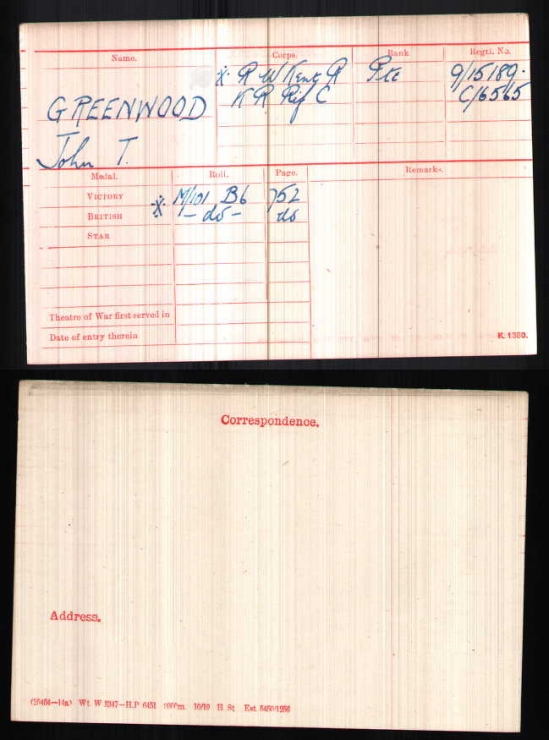 Name. Corps. Rank Regtl. No.
⁜ R W Kent R Pte G/15189.
GREENWOOD K R Rif C C/6565
John T.
Medal. Roll. Page. Remarks.
VICTORY ⁜ M/101 B6 752
BRITISH - do - do
STAR
Theatre of War first served in
Date of entry therein
K. 1380.
Correspondence.
Address.
Wt. W 5347—H.P 6451 1000m 10/19 H St